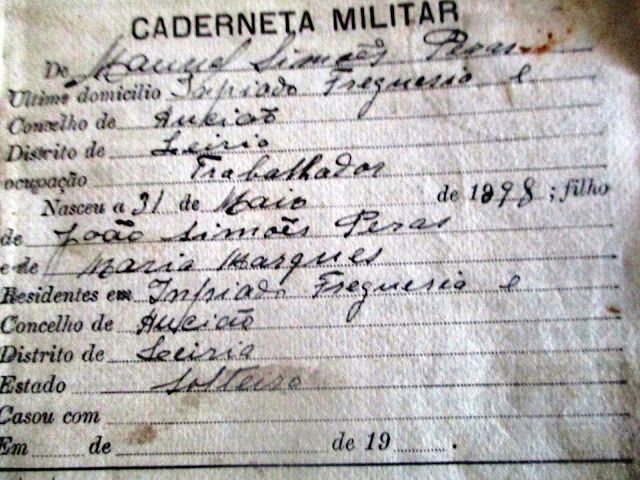 CADERNETA MILITAR
De Manuel Simoẽs Peras
Ultimo domicilio Inpiado Freguesia e
Concelho de Anciaõ
Distrito de Leiria
ocupação Trabalhador
Nasceu a 31 de Maio de 1898; filho
de João Simoẽs Peras
e de Maria Marques
Residentes em Inpiado Freguesia e
Concelho de Anciaõ
Distrito de Leiria
Estado Solteiro
Casou com
Em de de 19 .